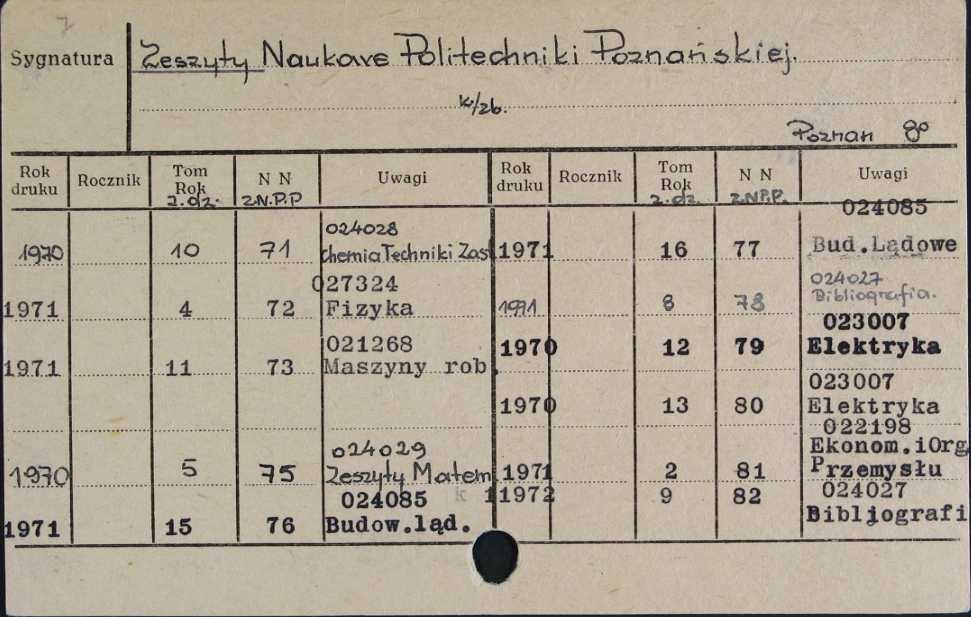 7
Sygnatura Zeszyty Naukowe Politechniki Poznańskiej.
k/zb.
Poznan 8°
Rok druku Rocznik Tom Rok z.dz. N N Z.N.P.P Uwagi Rok druku Rocznik Tom Rok z.dz. N N Z.N.P.P. Uwagi
024028
1970 10 71 chemia Techniki Zas
027324
1971 4 72 Fizyka
021268
1971 11 73 Maszyny rob.
024029
1970 5 75 Zeszyty Matem
024085
1971 15 76 Budow.ląd.
024085
1971 16 77 Bud.Lądowe
024027
1971 8 78 Bibliografia.
023007
1970 12 79 Elektryka
023007
1970 13 80 Elektryka
022198
Ekonom.iOrg
1971 2 81 Przemysłu
024027
1972 9 82 Bibljografi